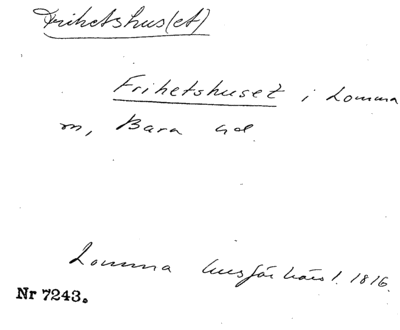 Frihetshus(et)
Frihetshuset i Lomma
sn, Bara hd
Lomma husförhörsl. 1816.
Nr 7243.